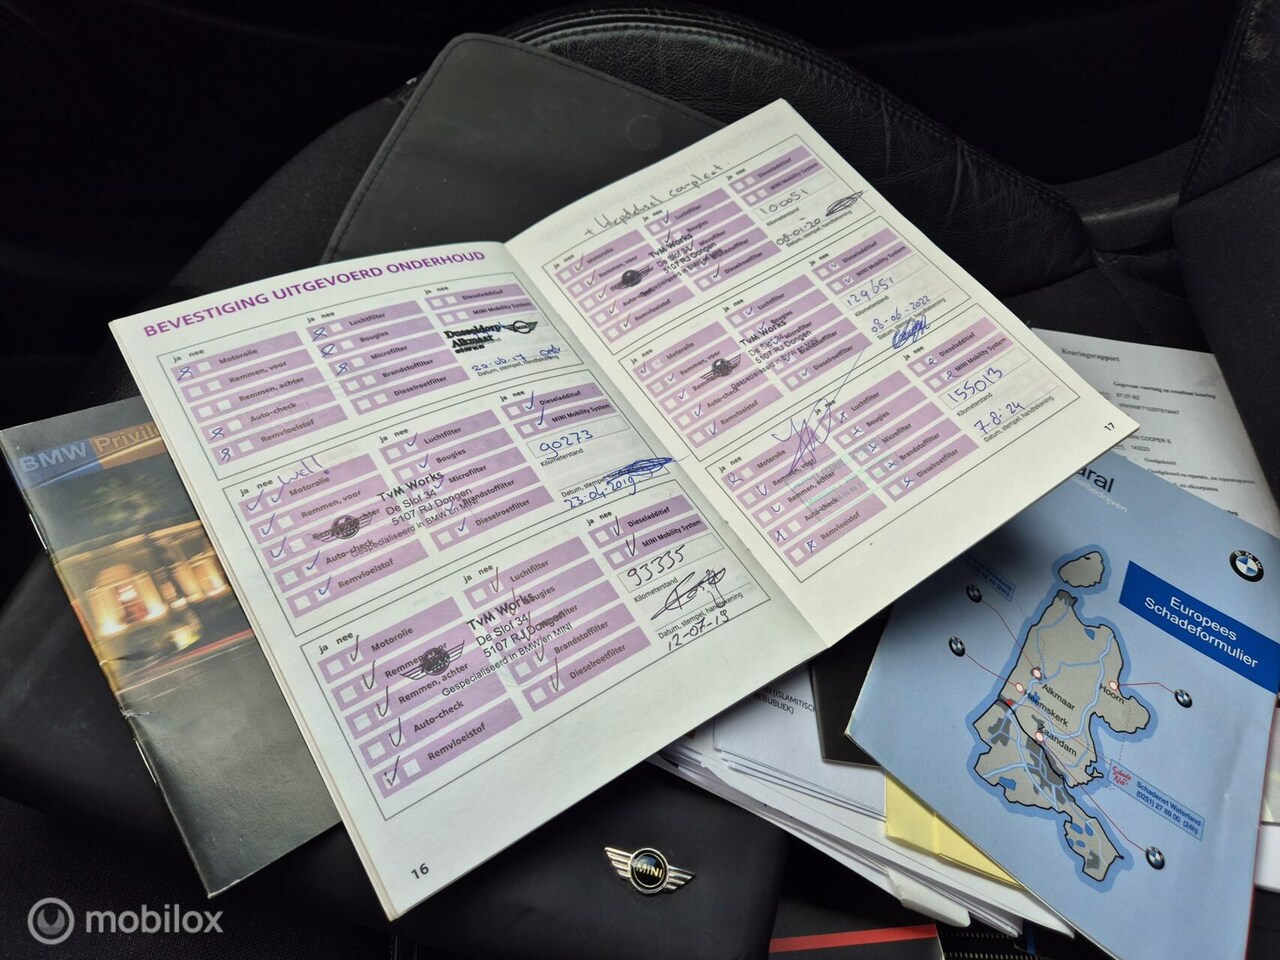 BEVESTIGING UITGEVOERD ONDERHOUD
ja nee
Motorolie
Remmen, voor
Remmen, achter
Auto-check
Remvloeistof
ja nee
Luchtfilter
Bougies
Microfilter
Brandstoffilter
Dieselroetfilter
ja nee
Dieseladditief
MINI Mobility System
Dusseldorp
Alkmaar
Datum, stempel, handtekening
ja nee
Motorolie
Remmen, voor
Auto-check
Remvloeistof
ja nee
Luchtfilter
Bougies
Microfilter
Brandstoffilter
Dieselroetfilter
TvM Works
De Slof 34
5107 RJ Dongen
Gespecialiseerd in BMW en MINI
ja nee
Dieseladditief
MINI Mobility System
90273
Kilometerstand
Datum, stempel
23-04-2019
ja nee
Motorolie
Remmen, achter
Auto-check
Remvloeistof
ja nee
Luchtfilter
Bougies
Brandstoffilter
Dieselroetfilter
TvM Works
De Slof 34
5107 RJ Dongen
Gespecialiseerd in BMW en MINI
ja nee
Dieseladditief
MINI Mobility System
93335
Kilometerstand
Datum, stempel, handtekening
12-07-19
16
ja nee
Motorolie
Remmen, voor
Remvloeistof
ja nee
Luchtfilter
Bougies
Microfilter
Dieselroetfilter
TvM Works
De Slof 34
5107 RJ Dongen
ja nee
Dieseladditief
MINI Mobility System
100051
Kilometerstand
08-01-20
Datum, stempel, handtekening
ja nee
Motorolie
Remmen, voor
Auto-check
Remvloeistof
ja nee
Luchtfilter
Bougies
Microfilter
Dieselroetfilter
TvM Works
De Slof 34
5107 RJ Dongen
ja nee
Dieseladditief
MINI Mobility System
129651
Kilometerstand
08-06-2022
ja nee
Motorolie
Remmen, voor
Remmen, achter
Auto-check
Remvloeistof
ja nee
Luchtfilter
Bougies
Microfilter
Brandstoffilter
Dieselroetfilter
ja nee
Dieseladditief
MINI Mobility System
155013
Kilometerstand
7-8-24
Datum, stempel, handtekening
17
BMW Privil
MINI
Keuringsrapport
Europees
Schadeformulier
Alkmaar
Hoorn
Heemskerk
Zaandam
Schadenet Waterland
(0251) 27 89 00 (24h)
(ISLAMITISCH
REPUBLIEK)
mobilox